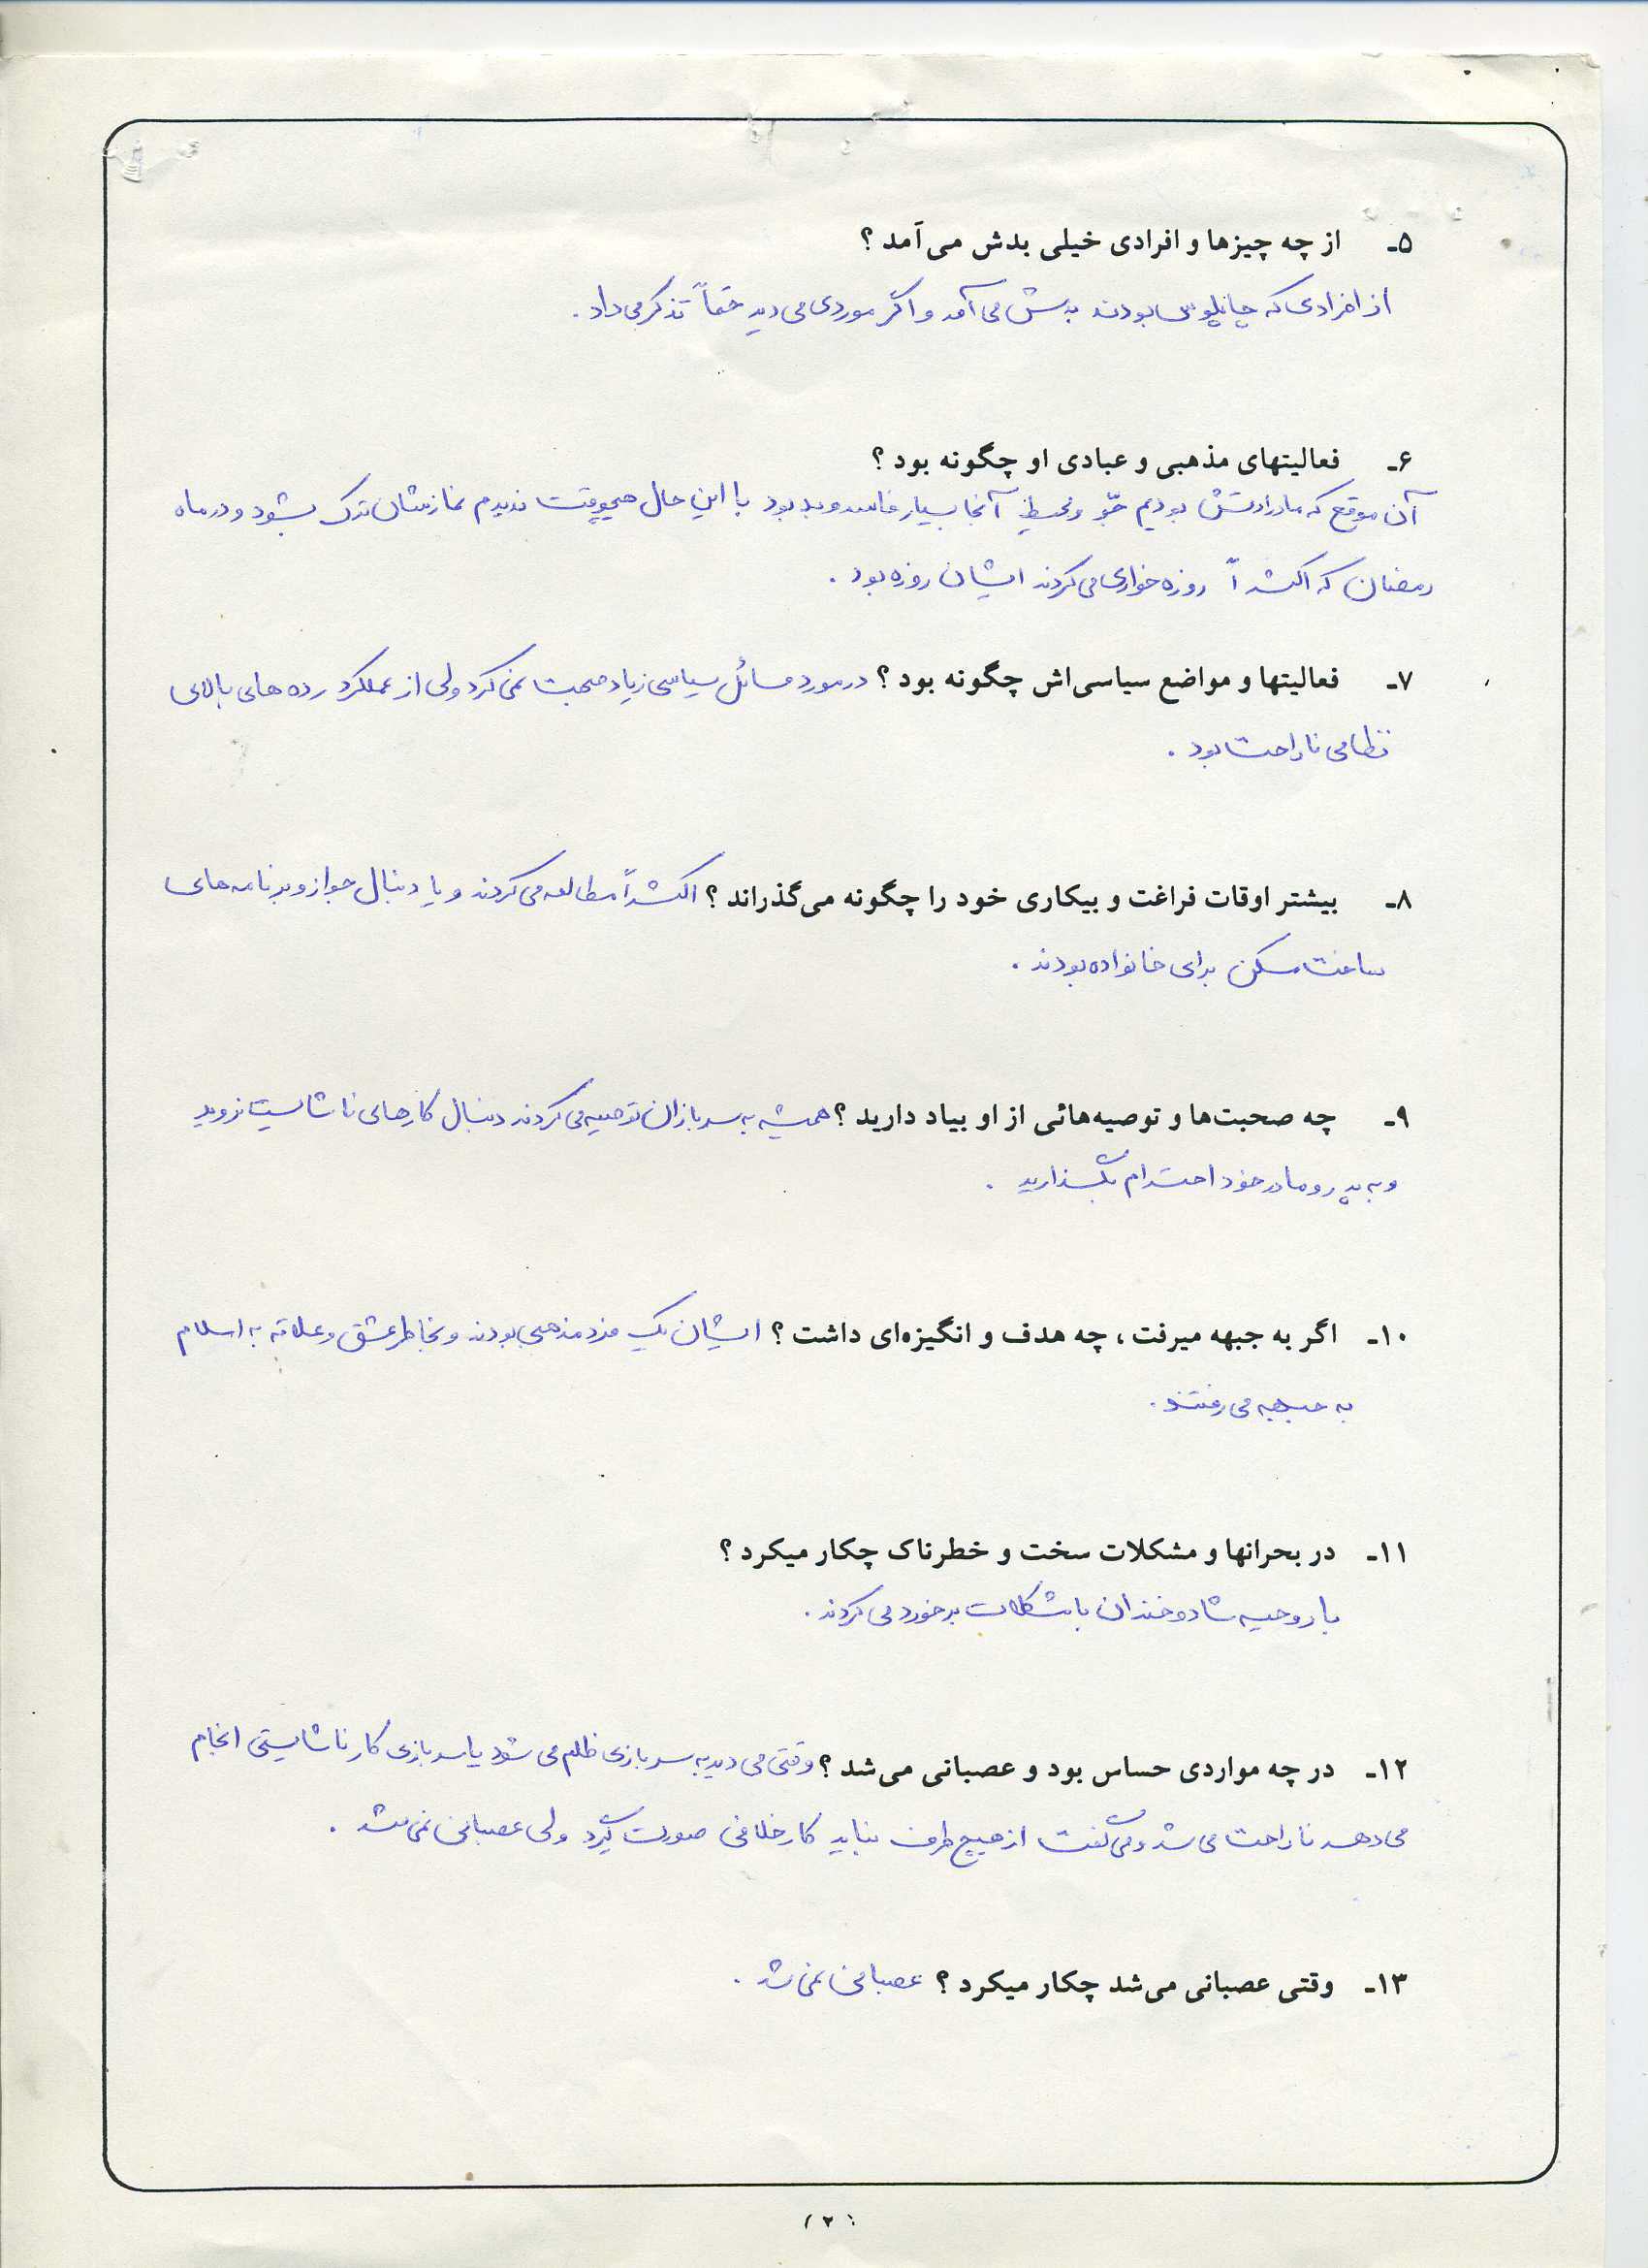 ۵ـ از چه چیزها و افرادی خیلی بدش می‌آمد ؟
از افرادی که چاپلوس بودند بدش می‌آمد و اگر موردی می‌دید حتماً تذکر می‌داد .
۶ـ فعالیتهای مذهبی و عبادی او چگونه بود ؟
آن موقع که ما در ارتش بودیم جوّ و محیط آنجا بسیار فاسد و بد بود با این حال هیچوقت ندیدم نمازشان ترک بشود و در ماه
رمضان که اکثراً روزه خواری می‌کردند ایشان روزه بود .
۷ـ فعالیتها و مواضع سیاسی‌اش چگونه بود ؟ در مورد مسائل سیاسی زیاد صحبت نمی‌کرد ولی از عملکرد رده های بالای
نظامی ناراحت بود .
۸ـ بیشتر اوقات فراغت و بیکاری خود را چگونه می‌گذراند ؟ اکثراً مطالعه می‌کردند و یا دنبال جواز و برنامه های
ساخت مسکن برای خانواده بودند .
۹ـ چه صحبت‌ها و توصیه‌هائی از او بیاد دارید ؟ همیشه به سربازان توصیه می‌کردند دنبال کارهای ناشایست نروید
و به پدر و مادر خود احترام بگذارید .
۱۰ـ اگر به جبهه میرفت ، چه هدف و انگیزه‌ای داشت ؟ ایشان یک فرد مذهبی بودند و بخاطر عشق و علاقه به اسلام
به جبهه می رفتند .
۱۱ـ در بحرانها و مشکلات سخت و خطرناک چکار میکرد ؟
با روحیه شاد و خندان با مشکلات برخورد می کردند .
۱۲ـ در چه مواردی حساس بود و عصبانی می‌شد ؟ وقتی می دید به سربازی ظلم می شود یا سربازی کار ناشایستی انجام
می دهد ناراحت می شد و می گفت از هیچ طرف نباید کار خلافی صورت گیرد ولی عصبانی نمی شد .
۱۳ـ وقتی عصبانی می‌شد چکار میکرد ؟ عصبانی نمی شد .
( ۲ )